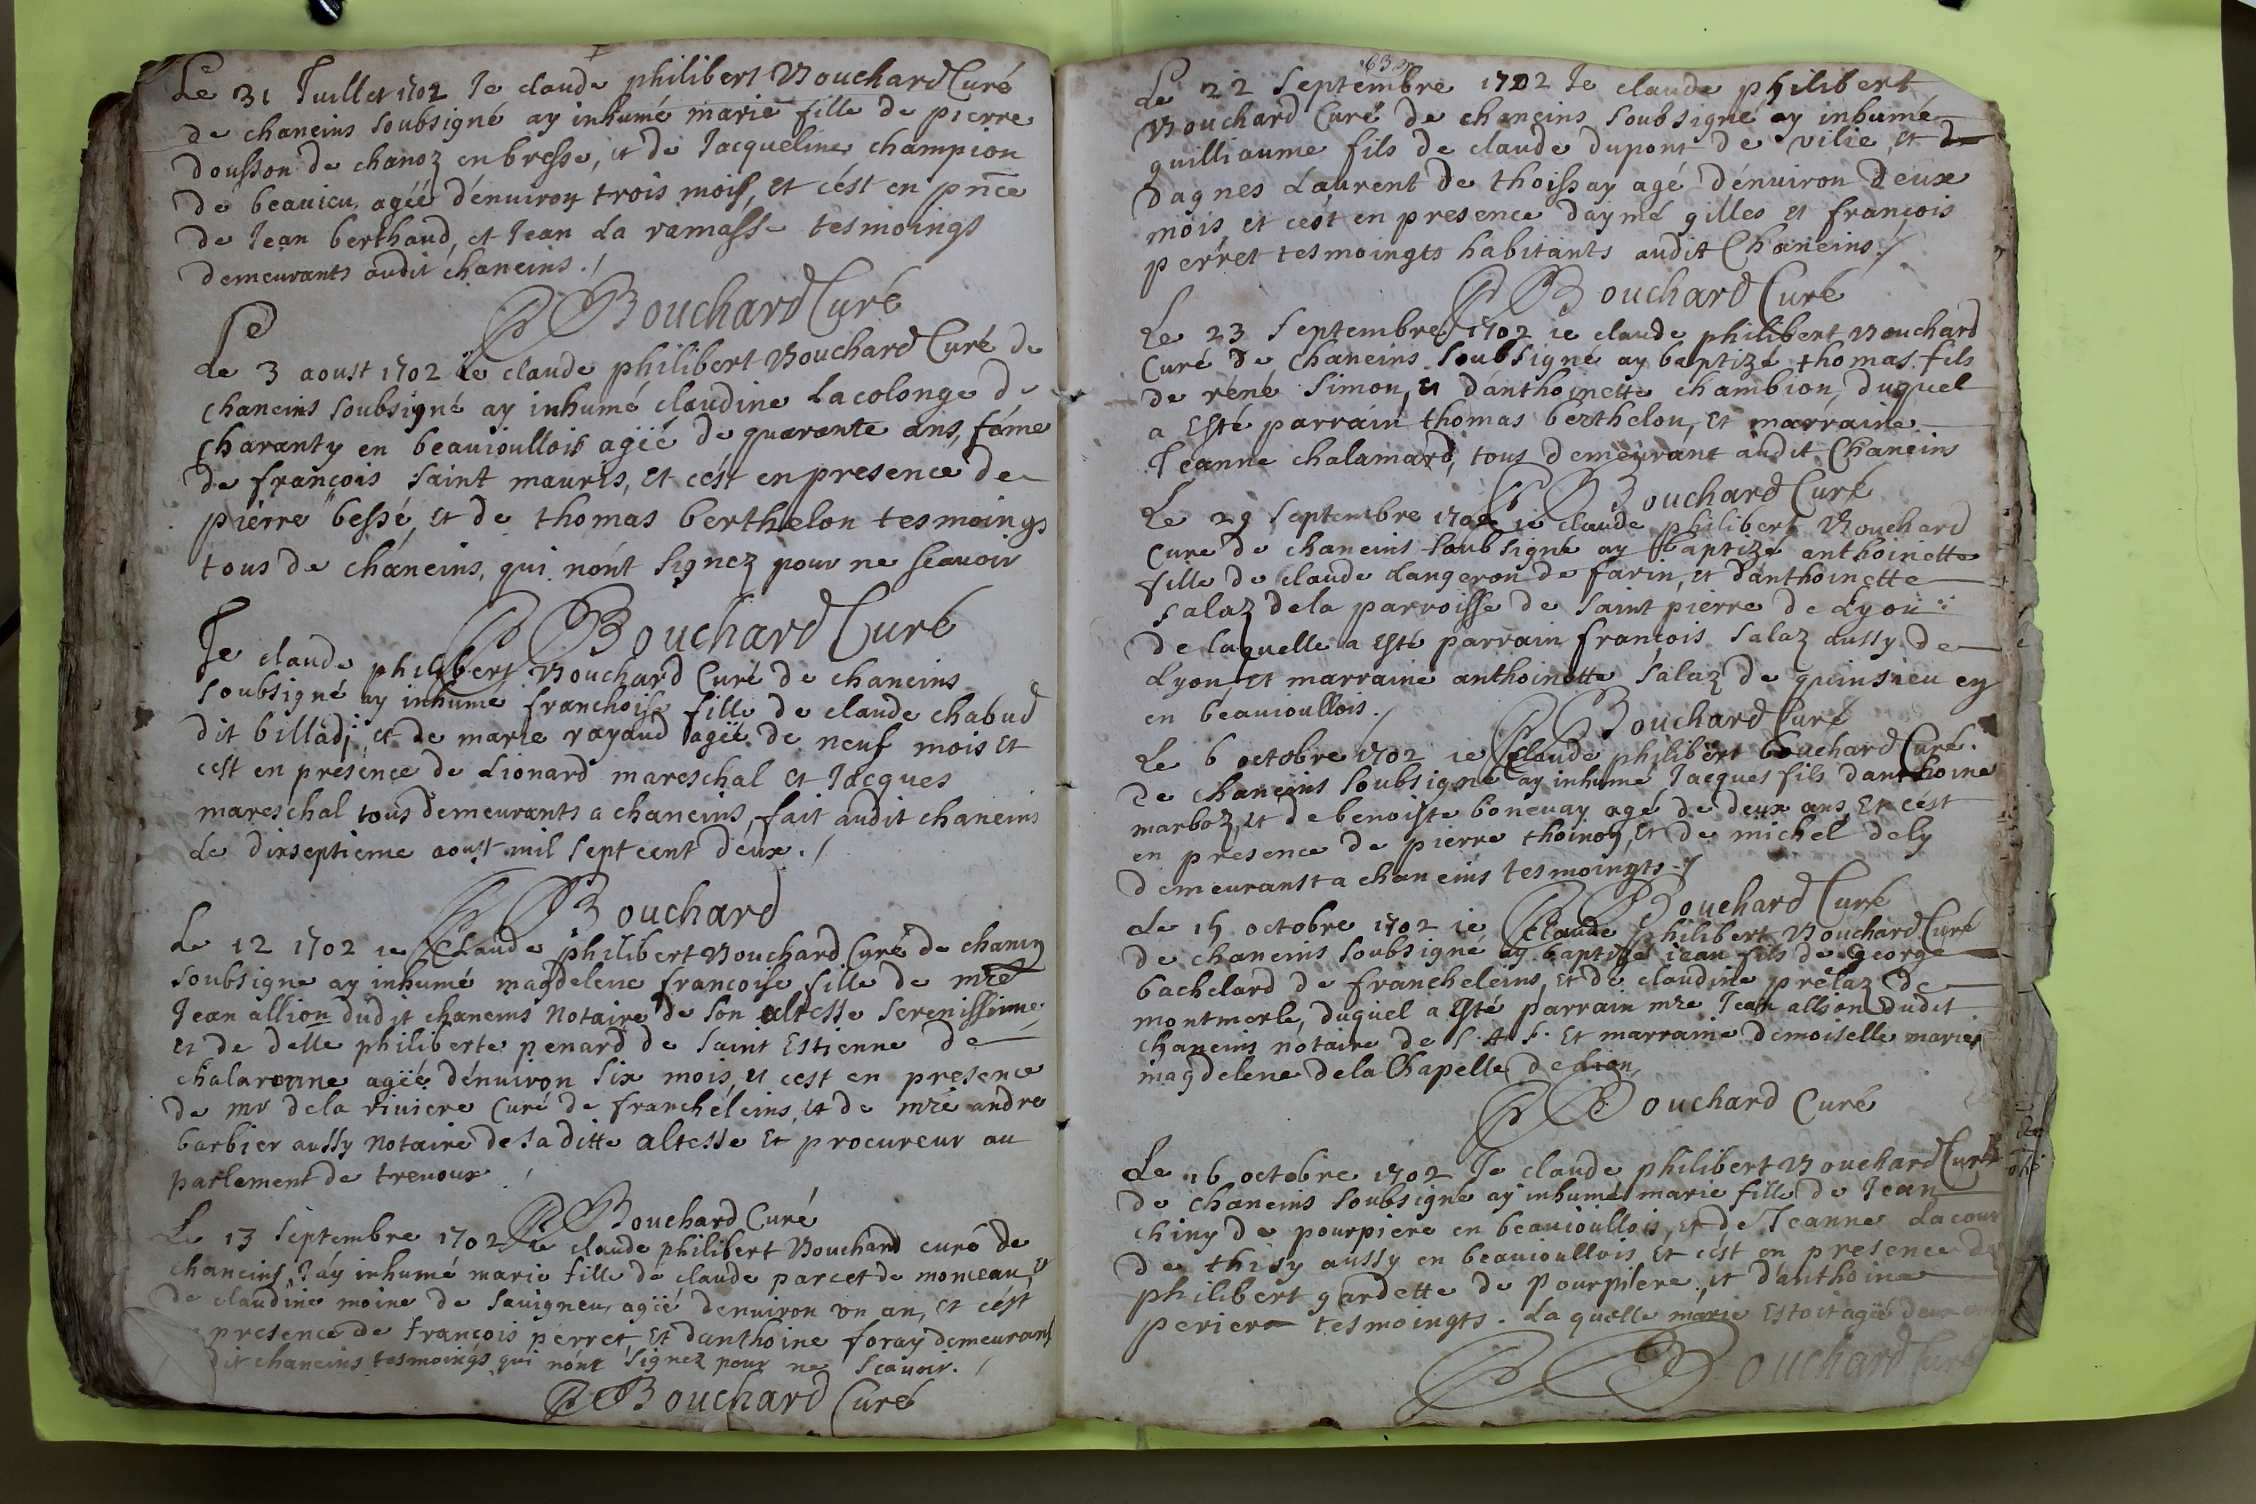 Le 31 Juillet 1702 Je claude philibert Bouchard Curé
de chaneins soubsigné ay inhumé marie fille de pierre
dousson de chanoz en bresse, et de Jacqueline champion
de beauieu agéé dénuiron trois mois, et cést en pnce
de Jean berthaud, et Jean La ramasse tesmoings
demeurants audit chaneins ./
Bouchard Curé
Le 3 aoust 1702 Ie claude philibert Bouchard Curé de
chaneins soubsigné ay inhumé claudine Lacolonge de
charanty en beauioullois agéé de quarante ans, fáme
de françois saint mauris, et cést en presence de
pierre bessé, et de thomas berthelon tesmoings
tous de cháneins, qui nónt signez pour ne scauoir
Bouchard Curé
Je claude philibert Bouchard Curé de chaneins
soubsigné ay inhumé franchoise fille de claude chabud
dit billadj, et de marie rayaud agéé de neuf mois et
cest en presence de Lionard mareschal et Jacques
mareschal tous demeurants a chaneins, fait audit chaneins
Le dixseptieme aoust mil sept cent deux ./
Bouchard
Le 12 1702 ie Claude philibert Bouchard Curé de chanins
soubsigne ay inhumé magdelene francoise fille de mre
Jean allion dudit chaneins Notaire de son altesse serenissime
et de delle philiberte penard de saint Estienne de
chalaronne agéé dénuiron six mois, et cest en presence
de mr dela riuiere curé de franchéleins, et de mre andre
barbier aussy Notaire de saditte altesse et procureur au
parlement de treuoux /
Bouchard Curé
Le 13 septembre 1702 ie claude philibert Bouchard curé de
chaneins, Jáy inhumé marie fille de claude parcet de monceau, et
de claudine moine de sauigneu, agéé denuiron vn an, et cést
presence de françois perret, et danthoine foray demeurant
dit chaneins tesmoings qui nónt signez pour ne scauoir. /
Bouchard Curé
Le 22 septembre 1702 Je claude philibert
Bouchard Curé de chaneins soubsigné ay inhumé
guilliaume fils de claude dupont de vilie, et de
dagnes Laurent de thoissay agé dénuiron deux
mois et cést en presence daymé gilles et françois
perret tesmoingts habitants audit Chaneins ./
Bouchard Curé
Le 23 septembre 1702 ie claude philibert Bouchard
Curé de Chaneins soubsigné ay baptizé thomas fils
de réné simon, et dánthoinette chambion, duquel
a Esté parrain thomas berthelon, et marraine
Jeanne chalamard, tous demeurant audit Chaneins
Bouchard Curé
Le 29 septembre 1702 ie claude philibert Bouchard
Cure de chaneins soubsigné ay baptizé anthoinette
fille de claude Langeron de farin, et dánthoinette
salaz dela parroisse de saint pierre de Lyon
de laquelle a esté parrain françois salaz aussy de
Lyon, et marraine anthoinette salaz de quinsieu en
en beauioullois ./
Bouchard Curé
Le 6 octobre 1702 ie Claude philibert bouchard Curé.
de chaneins soubsigné ay inhumé Jacques fils danthoine
marboz, et de benoiste boneuay agé de deux ans, Et cést
en presence de pierre thoinon, Et de michel dely
demeuranst a chaneins tesmoingts ./
Bouchard Curé
Le 15 octobre 1702 ie Claude philibert Bouchard Curé
de chaneins soubsigné ay baptizé iean fils de George
bachelard de francheleins, et de claudine prélaz de
montmerle, duquel a Esté parrain mre Jean allion dudit
chaneins notaire de S. A. S. Et marraine demoiselle marie
magdelene dela Chapelle de Lion,
Bouchard Curé
Le 16 octobre 1702 Je claude philibert Bouchard Curé
de chaneins soubsigné ay inhumé marie fille de Jean
chiny de pourpiere en beauioullois, et de Jeanne Lacour
de thisy aussy en beauioullois, Et cést en presence de
philibert gardette de Pourpilere, et dánthoine
perier tesmoingts. Laquelle marie Estoit agéé deux
Bouchard Curé